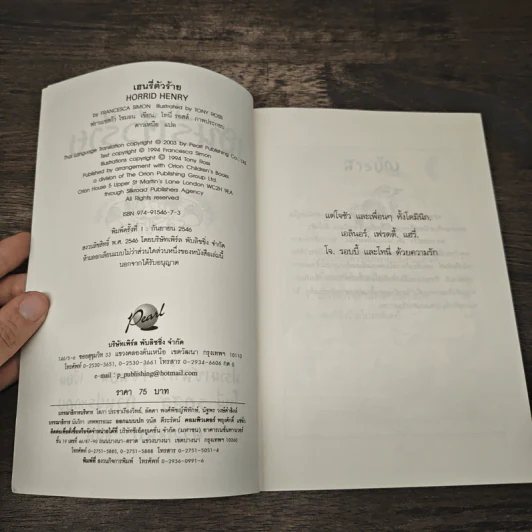 เฮนรี่ตัวร้าย
HORRID HENRY
by FRANCESCA SIMON Illustrated by TONY ROSS
ฟรานเชสก้า ไซมอน เขียน, โทนี่ รอสส์ ภาพประกอบ
ดาวเหนือ แปล
Thai Language Translation copyright © 2003 by Pearl Publishing Co., Ltd
Text copyright © 1994 Francesca Simon
Illustrations copyright © 1994 Tony Ross
Published by arrangement with Orion Children's Books
a division of The Orion Publishing Group Ltd.
Orion House 5 Upper St Martin's Lane London WC2H 9EA
through Silkroad Publishers Agency
All Rights reserved
ISBN 974-91546-7-3
พิมพ์ครั้งที่ 1 : กันยายน 2546
สงวนลิขสิทธิ์ พ.ศ. 2546 โดยบริษัทเพิร์ล พับลิชชิ่ง จำกัด
ห้ามลอกเลียนแบบไม่ว่าส่วนใดส่วนหนึ่งของหนังสือเล่มนี้
นอกจากได้รับอนุญาต
Pearl
บริษัทเพิร์ล พับลิชชิ่ง จำกัด
ซอยสุขุมวิท 53 แขวงคลองตันเหนือ เขตวัฒนา กรุงเทพฯ 10110
โทรศัพท์ 0-2530-3651, 0-2530-3661 โทรสาร 0-2934-6606 กด 0
e-mail : p_publishing@hotmail.com
ราคา 75 บาท
โทรศัพท์ 0-2751-5885, 0-2751-5888 โทรสาร 0-2751-5051-4
พิมพ์ที่ โทรศัพท์ 0-2936-0991-6
แด่โจชัว และเพื่อนๆ ทั้งโดมินิก,
เอลินอร์, เฟรดดี้, แฮรี่,
โจ, รอบบี้ และโทนี่ ด้วยความรัก
สารบัญ